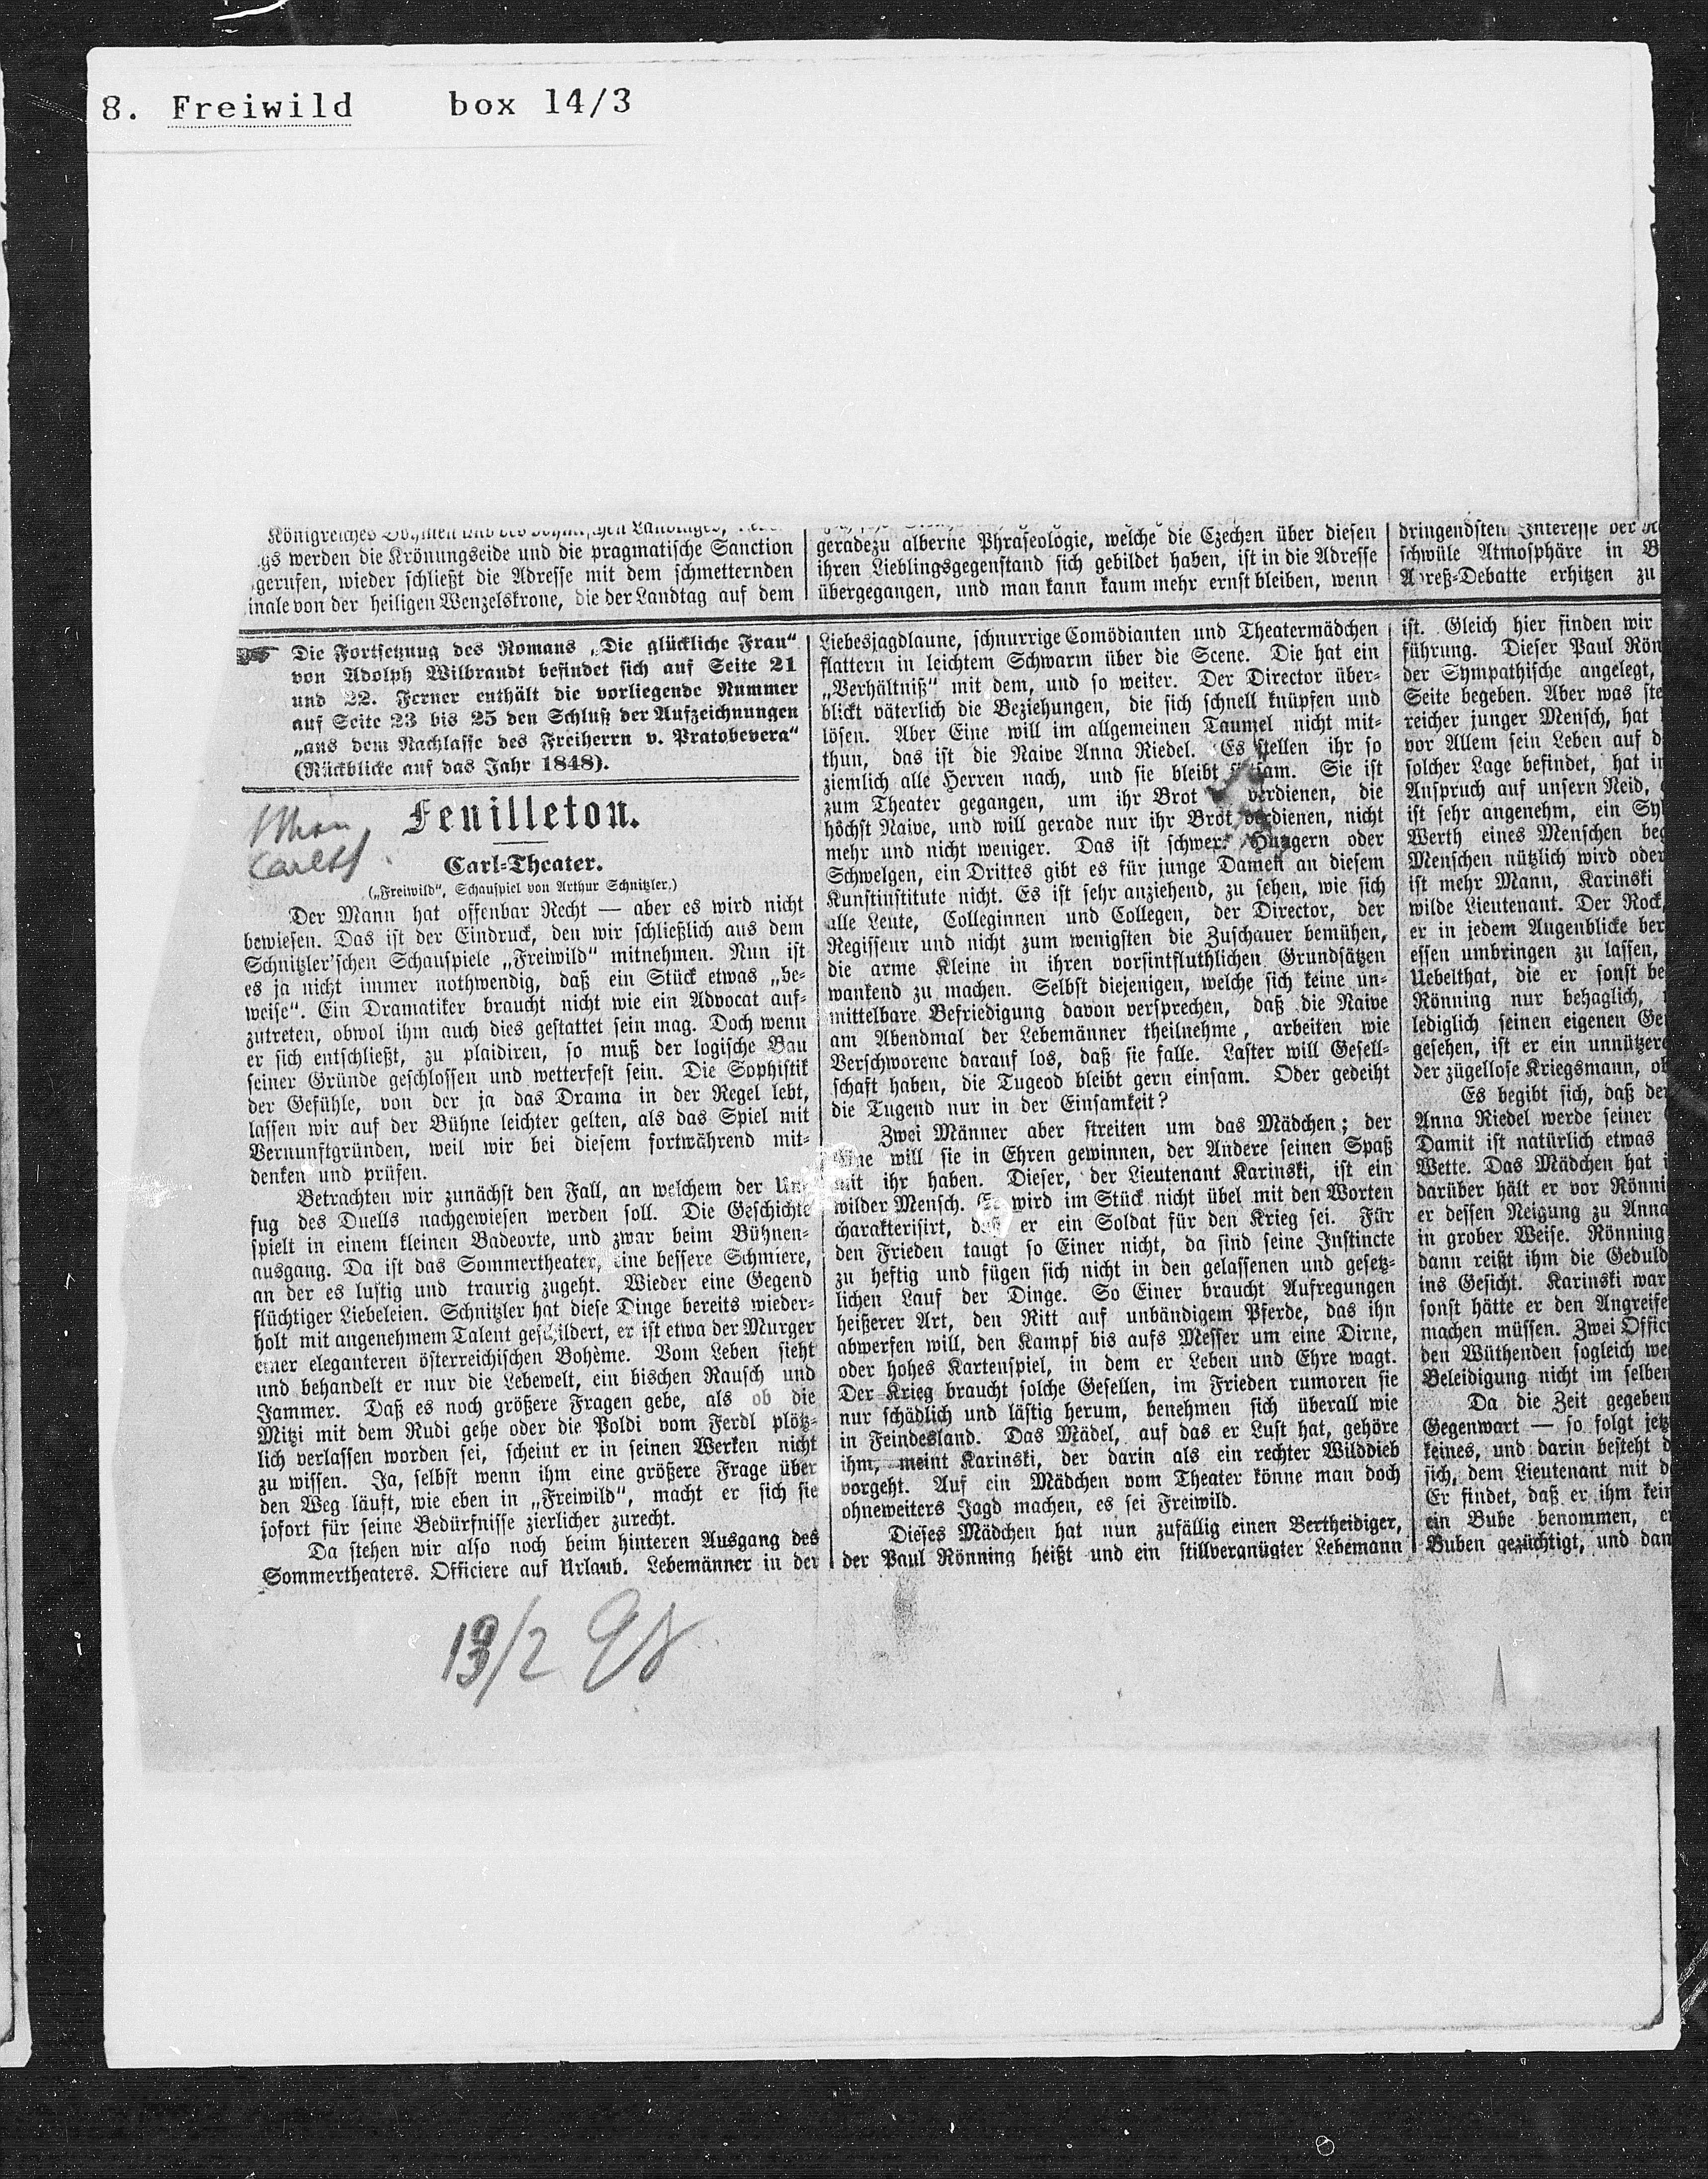 8. Freiwild box 14/3
Königreiches
werden die Krönungseide und die pragmatische Sanction
gerufen, wieder schließt die Adresse mit dem schmetternden
inale von der heiligen Wenzelskrone, die der Landtag auf dem
geradezu alberne Phraseologie, welche die Czechen über diesen
ihren Lieblingsgegenstand sich gebildet haben, ist in die Adresse
übergegangen, und man kann kaum mehr ernst bleiben, wenn
dringendsten Interesse der
schwüle Atmosphäre in B
Adreß-Debatte erhitzen zu
Die Fortsetzung des Romans „Die glückliche Frau“
von Adolph Wilbrandt befindet sich auf Seite 21
und 22. Ferner enthält die vorliegende Nummer
auf Seite 23 bis 25 den Schluß der Aufzeichnungen
„aus dem Nachlasse des Freiherrn v. Pratobevera“
(Rückblicke auf das Jahr 1848).
Feuilleton.
Carl-Theater.
(„Freiwild“, Schauspiel von Arthur Schnitzler.)
Der Mann hat offenbar Recht — aber es wird nicht
bewiesen. Das ist der Eindruck, den wir schließlich aus dem
Schnitzler'schen Schauspiele „Freiwild“ mitnehmen. Nun ist
es ja nicht immer nothwendig, daß ein Stück etwas „be-
weise“. Ein Dramatiker braucht nicht wie ein Advocat auf-
zutreten, obwol ihm auch dies gestattet sein mag. Doch wenn
er sich entschließt, zu plaidiren, so muß der logische Bau
seiner Gründe geschlossen und wetterfest sein. Die Sophistik
der Gefühle, von der ja das Drama in der Regel lebt,
lassen wir auf der Bühne leichter gelten, als das Spiel mit
Vernunftgründen, weil wir bei diesem fortwährend mit-
denken und prüfen.
Betrachten wir zunächst den Fall, an welchem der Un-
fug des Duells nachgewiesen werden soll. Die Geschichte
spielt in einem kleinen Badeorte, und zwar beim Bühnen-
ausgang. Da ist das Sommertheater, eine bessere Schmiere,
an der es lustig und traurig zugeht. Wieder eine Gegend
flüchtiger Liebeleien. Schnitzler hat diese Dinge bereits wieder-
holt mit angenehmem Talent geschildert, er ist etwa der Murger
einer eleganteren österreichischen Bohème. Vom Leben sieht
und behandelt er nur die Lebewelt, ein bischen Rausch und
Jammer. Daß es noch größere Fragen gebe, als ob die
Mitzi mit dem Rudi gehe oder die Poldi vom Ferdl plötz-
lich verlassen worden sei, scheint er in seinen Werken nicht
zu wissen. Ja, selbst wenn ihm eine größere Frage über
den Weg läuft, wie eben in „Freiwild“, macht er sich sie
sofort für seine Bedürfnisse zierlicher zurecht.
Da stehen wir also noch beim hinteren Ausgang des
Sommertheaters. Officiere auf Urlaub. Lebemänner in der
Liebesjagdlaune, schnurrige Comödianten und Theatermädchen
flattern in leichtem Schwarm über die Scene. Die hat ein
„Verhältniß“ mit dem, und so weiter. Der Director über-
blickt väterlich die Beziehungen, die sich schnell knüpfen und
lösen. Aber Eine will im allgemeinen Taumel nicht mit-
thun, das ist die Naive Anna Riedel. Es stellen ihr so
ziemlich alle Herren nach, und sie bleibt Sie ist
zum Theater gegangen, um ihr Brot verdienen, die
höchst Naive, und will gerade nur ihr Brot verdienen, nicht
mehr und nicht weniger. Das ist schwer. Hungern oder
Schwelgen, ein Drittes gibt es für junge Damen an diesem
Kunstinstitute nicht. Es ist sehr anziehend, zu sehen, wie sich
alle Leute, Colleginnen und Collegen, der Director, der
Regisseur und nicht zum wenigsten die Zuschauer bemühen,
die arme Kleine in ihren vorsintfluthlichen Grundsätzen
wankend zu machen. Selbst diejenigen, welche sich keine un-
mittelbare Befriedigung davon versprechen, daß die Naive
am Abendmal der Lebemänner theilnehme, arbeiten wie
Verschworene darauf los, daß sie falle. Laster will Gesell-
schaft haben, die Tugeod bleibt gern einsam. Oder gedeiht
die Tugend nur in der Einsamkeit?
Zwei Männer aber streiten um das Mädchen; der
Eine will sie in Ehren gewinnen, der Andere seinen Spaß
mit ihr haben. Dieser, der Lieutenant Karinski, ist ein
wilder Mensch. Er wird im Stück nicht übel mit den Worten
charakterisirt, daß er ein Soldat für den Krieg sei. Für
den Frieden taugt so Einer nicht, da sind seine Instincte
zu heftig und fügen sich nicht in den gelassenen und gesetz-
lichen Lauf der Dinge. So Einer braucht Aufregungen
heißerer Art, den Ritt auf unbändigem Pferde, das ihn
abwerfen will, den Kampf bis aufs Messer um eine Dirne,
oder hohes Kartenspiel, in dem er Leben und Ehre wagt.
Der Krieg braucht solche Gesellen, im Frieden rumoren sie
nur schädlich und lästig herum, benehmen sich überall wie
in Feindesland. Das Mädel, auf das er Lust hat, gehöre
ihm, meint Karinski, der darin als ein rechter Wilddieb
vorgeht. Auf ein Mädchen vom Theater könne man doch
ohneweiters Jagd machen, es sei Freiwild.
Dieses Mädchen hat nun zufällig einen Vertheidiger,
der Paul Rönning heißt und ein stillvergnügter Lebemann
ist. Gleich hier finden wir
führung. Dieser Paul Rön
der Sympathische angelegt,
Seite begeben. Aber was ste
reicher junger Mensch, hat
vor Allem sein Leben auf d
solcher Lage befindet, hat in
Anspruch auf unsern Neid,
ist sehr angenehm, ein Sy
Werth eines Menschen beg
Menschen nützlich wird oder
ist mehr Mann, Karinski
wilde Lieutenant. Der Rock,
er in jedem Augenblicke ber
essen umbringen zu lassen,
Uebelthat, die er sonst be
Rönning nur behaglich,
lediglich seinen eigenen Ge
gesehen, ist er ein unnützere
der zügellose Kriegsmann, ob
Es begibt sich, daß der
Anna Riedel werde seiner
Damit ist natürlich etwas
Wette. Das Mädchen hat i
darüber hält er vor Rönni
er dessen Neigung zu Anna
in grober Weise. Rönning
dann reißt ihm die Geduld
ins Gesicht. Karinski war
sonst hätte er den Angreife
machen müssen. Zwei Offici
den Wüthenden sogleich we
Beleidigung nicht im selben
Da die Zeit gegeben
Gegenwart — so folgt jetz
keines, und darin besteht d
sich, dem Lieutenant mit d
Er findet, daß er ihm kein
ein Bube benommen, er
Buben gezüchtigt, und dan
13/2 98